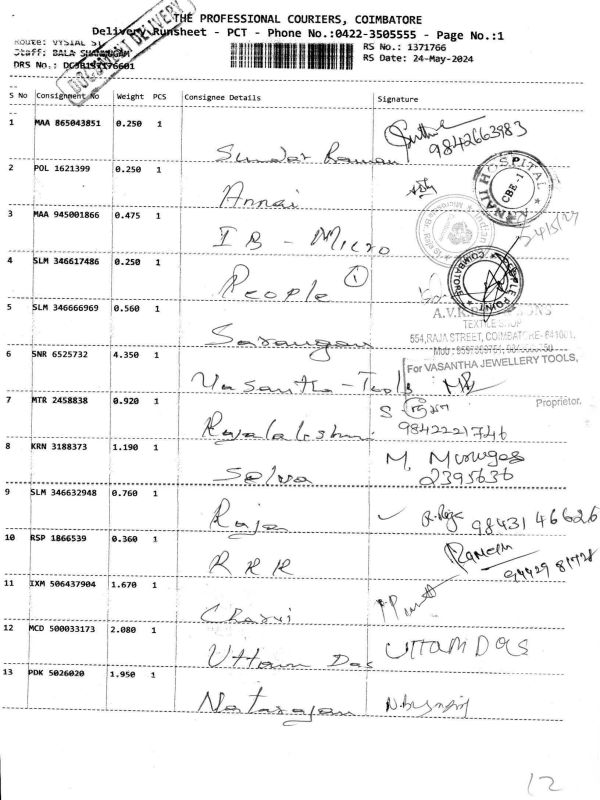 THE PROFESSIONAL COURIERS, COIMBATORE
Delivery Runsheet - PCT - Phone No.:0422-3505555 - Page No.:1
DOCUMENT DELIVERY
Route: VYSIAL ST
RS No.: 1371766
Staff: BALA SHANMUGAM
RS Date: 24-May-2024
DRS No.:
S No Consignment No Weight PCS Consignee Details Signature
1 MAA 865043851 0.250 1 Sundar Raman 9842663983
2 POL 1621399 0.250 1 Annai
HOSPITAL CBE-1
3 MAA 945001866 0.475 1 IB - Micro
4 SLM 346617486 0.250 1 People 1
COIMBATORE PEOPLE POINT
5 SLM 346666969 0.560 1 Sarangan
TEXTILE SHOP
554, RAJA STREET, COIMBATORE- 641001.
6 SNR 6525732 4.350 1 Vasantha - Tools
For VASANTHA JEWELLERY TOOLS,
Proprietor.
7 MTR 2458838 0.920 1 Rajalakshmi 9842221746
8 KRN 3188373 1.190 1 Selva M. Murugas
2395636
9 SLM 346632948 0.760 1 Raja R. Raja 98431 46626
10 RSP 1866539 0.360 1 R K R
11 IXM 506437904 1.670 1 Charvi
12 MCD 500033173 2.080 1 Uttam Das UTTAM DAS
13 PDK 5026020 1.950 1 Natarajan
12